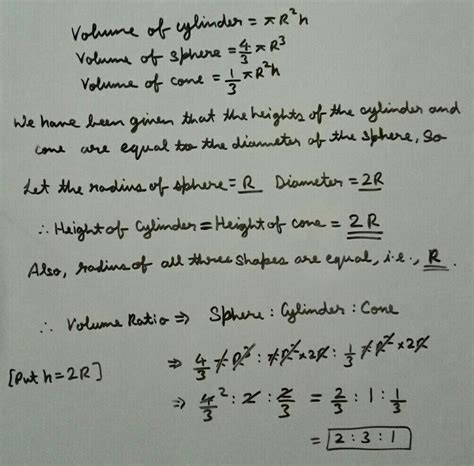 Volume of cylinder = πR²h
Volume of sphere = 4/3 πR³
Volume of cone = 1/3 πR²h
We have been given that the heights of the cylinder and
cone are equal to the diameter of the sphere, So
Let the radius of sphere = R Diameter = 2R
∴ Height of Cylinder = Height of cone = 2R
Also, radius of all three shapes are equal, i.e., R.
∴ Volume Ratio ⇒ Sphere : Cylinder : Cone
[Put h = 2R] ⇒ 4/3 πR³ : πR² × 2R : 1/3 πR² × 2R
⇒ 4/3 ² : 2 : 2/3 = 2/3 : 1 : 1/3
= 2 : 3 : 1